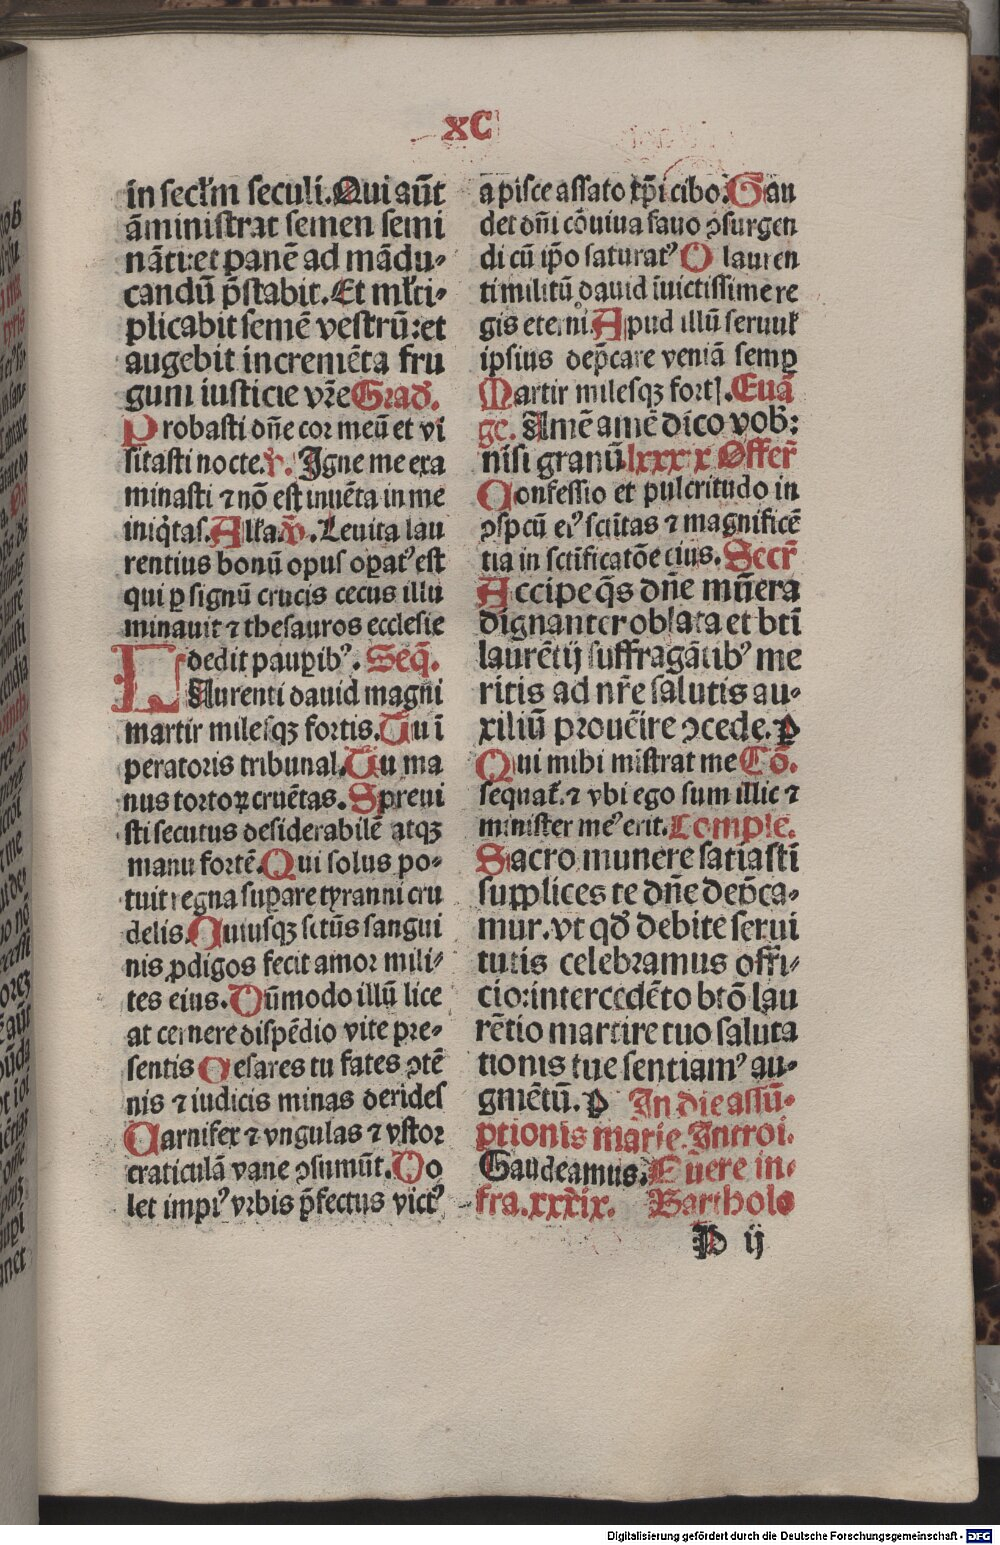 xC
in secl̄m seculi. Qui aūt
āministrat semen semi
nāti: et panē ad mādu-
candū p̄stabit. Et ml̄ti-
plicabit semē vestrū: et
augebit incremēta fru
gum iusticie vr̄e Grad̄.
Probasti dn̄e cor meū et vi
sitasti nocte. v̄. Igne me exa
minasti ⁊ nō est inuēta in me
iniq̇tas. Alla. v̄. Leuita lau
rentius bonū opus oꝑatꝰ est
qui ꝑ signū crucis cecus illu
minauit ⁊ thesauros ecclesie
dedit pauꝑibꝰ. Seq̄.
LAurenti dauid magni
martir milesqꝫ fortis. Tu ī
peratoris tribunal. Tu ma
nus tortoꝝ cruētas. Spreui
sti secutus desiderabilē atqꝫ
manu fortē. Qui solus po-
tuit regna suꝑare tyranni cru
delis. Cuiusqꝫ sctūs sangui
nis ꝓdigos fecit amor mili-
tes eius. Dūmodo illū lice
at cernere dispēdio vite pre-
sentis Cesares tu fates ↄtē
nis ⁊ iudicis minas derides
Carnifex ⁊ vngulas ⁊ vstor
craticulā vane ↄsumūt. Do
let impiꝰ vrbis p̄fectus victꝰ
a pisce assato xp̄i cibo. Gau
det dn̄i cōuiua fauo ↄsurgen
di cū ip̄o saturatꝰ O lauren
ti militū dauid īuictissime re
gis eterni. Apud illū seruul̄
ipsius dep̄care veniā semꝑ
Martir milesqꝫ fortꝭ. Euā
ge. Amē amē dico vob̄:
nisi granū. lxxxix Offer̄
Confessio et pulcritudo in
ↄspcū eiꝰ sc̄titas ⁊ magnificē
tia in sctīficatōe eius. Secr̄
Accipe q̄s dn̄e mūera
dignanter oblata et bti
laurētij suffragātibꝰ me
ritis ad nr̄e salutis au-
xiliū prouēire ↄcede. P
Qui mihi mīstrat me Cō.
sequat̄. ⁊ vbi ego sum illic ⁊
minister meꝰ erit. Comple.
Sacro munere satiasti
supplices te dn̄e dep̄ca-
mur. vt qd̄ debite serui
tutis celebramus offi-
cio: intercedēto btō lau
rētio martire tuo saluta
tionis tue sentiamꝰ au-
gmētū. P In die assū-
ptionis marie. Introi.
Gaudeamus. Euere in-
fra. xxxix. Bartholo
P ij
Digitalisierung gefördert durch die Deutsche Forschungsgemeinschaft - DFG